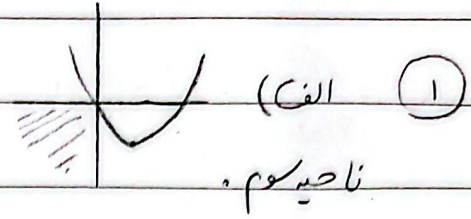 ۱ الف)
ناحیه سوم.